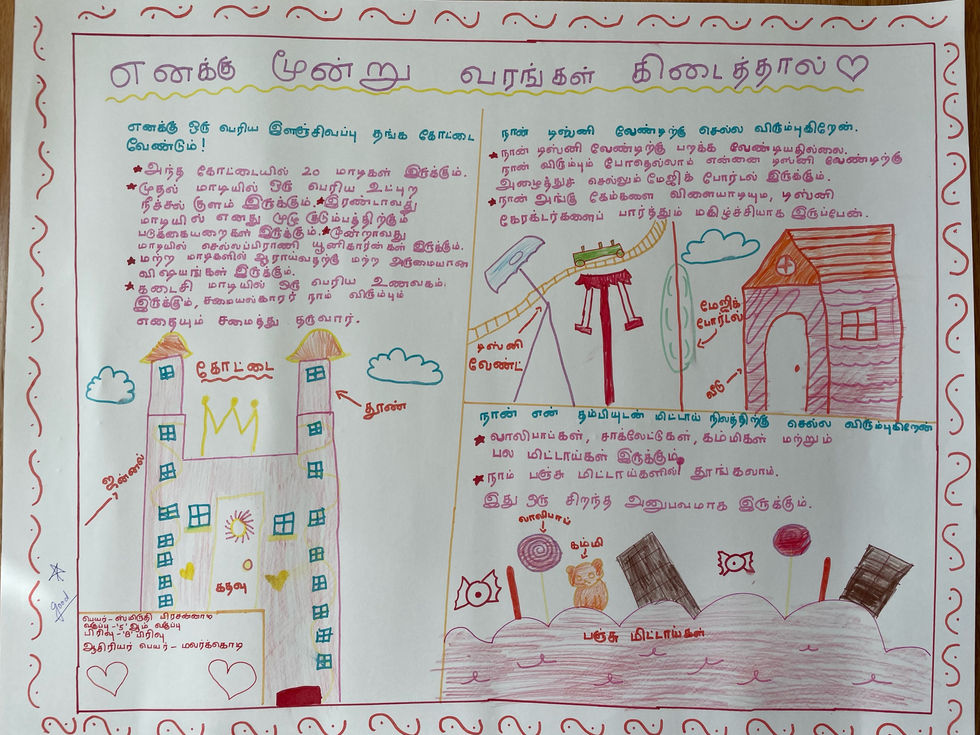 எனக்கு மூன்று வரங்கள் கிடைத்தால்
எனக்கு ஒரு பெரிய இளஞ்சிவப்பு தங்க கோட்டை
வேண்டும்!
அந்த கோட்டையில் 20 மாடிகள் இருக்கும்.
முதல் மாடியில் ஒரு பெரிய உட்புற
நீச்சல் குளம் இருக்கும். இரண்டாவது
மாடியில் எனது முழு குடும்பத்திற்கும்
படுக்கையறைகள் இருக்கும். மூன்றாவது
மாடியில் செல்லப்பிராணி யூனிகார்ன்கள் இருக்கும்.
மற்ற மாடிகளில் ஆராய்வதற்கு மற்ற அருமையான
விஷயங்கள் இருக்கும்.
கடைசி மாடியில் ஒரு பெரிய உணவகம்.
இருக்கும், சமையல்காரர் நாம் விரும்பும்
எதையும் சமைத்து தருவார்.
கோட்டை
தூண்
ஜன்னல்
கதவு
good
வகுப்பு -'5' ஆம் வகுப்பு
பிரிவு -'B' பிரிவு
ஆதிரியர் பெயர் - மலர்க்கொடி
நான் டிஸ்னி லேண்டிற்கு செல்ல விரும்புகிறேன்.
நான் டிஸ்னி லேண்டிற்கு பறக்க வேண்டியதில்லை.
நான் விரும்பும் போதெல்லாம் என்னை டிஸ்னி லேண்டிற்கு
அழைத்துச் செல்லும் மேஜிக் போர்டல் இருக்கும்.
நான் அங்கு கேம்களை விளையாடியும், டிஸ்னி
கேரக்டர்களைப் பார்த்தும் மகிழ்ச்சியாக இருப்பேன்.
டிஸ்னி
லேண்ட்
மேஜிக்
போர்டல்
வீடு
நான் என் தம்பியுடன் மிட்டாய் நிலத்திற்கு செல்ல விரும்புகிறேன்
லாலிபாப்கள், சாக்லேட்டுகள், கம்மிகள் மற்றும்
பல மிட்டாய்கள் இருக்கும்.
நாம் பஞ்சு மிட்டாய்களில் தூங்கலாம்.
இது ஒரு சிறந்த அனுபவமாக இருக்கும்.
லாலிபாப்
கம்மி
பஞ்சு மிட்டாய்கள்